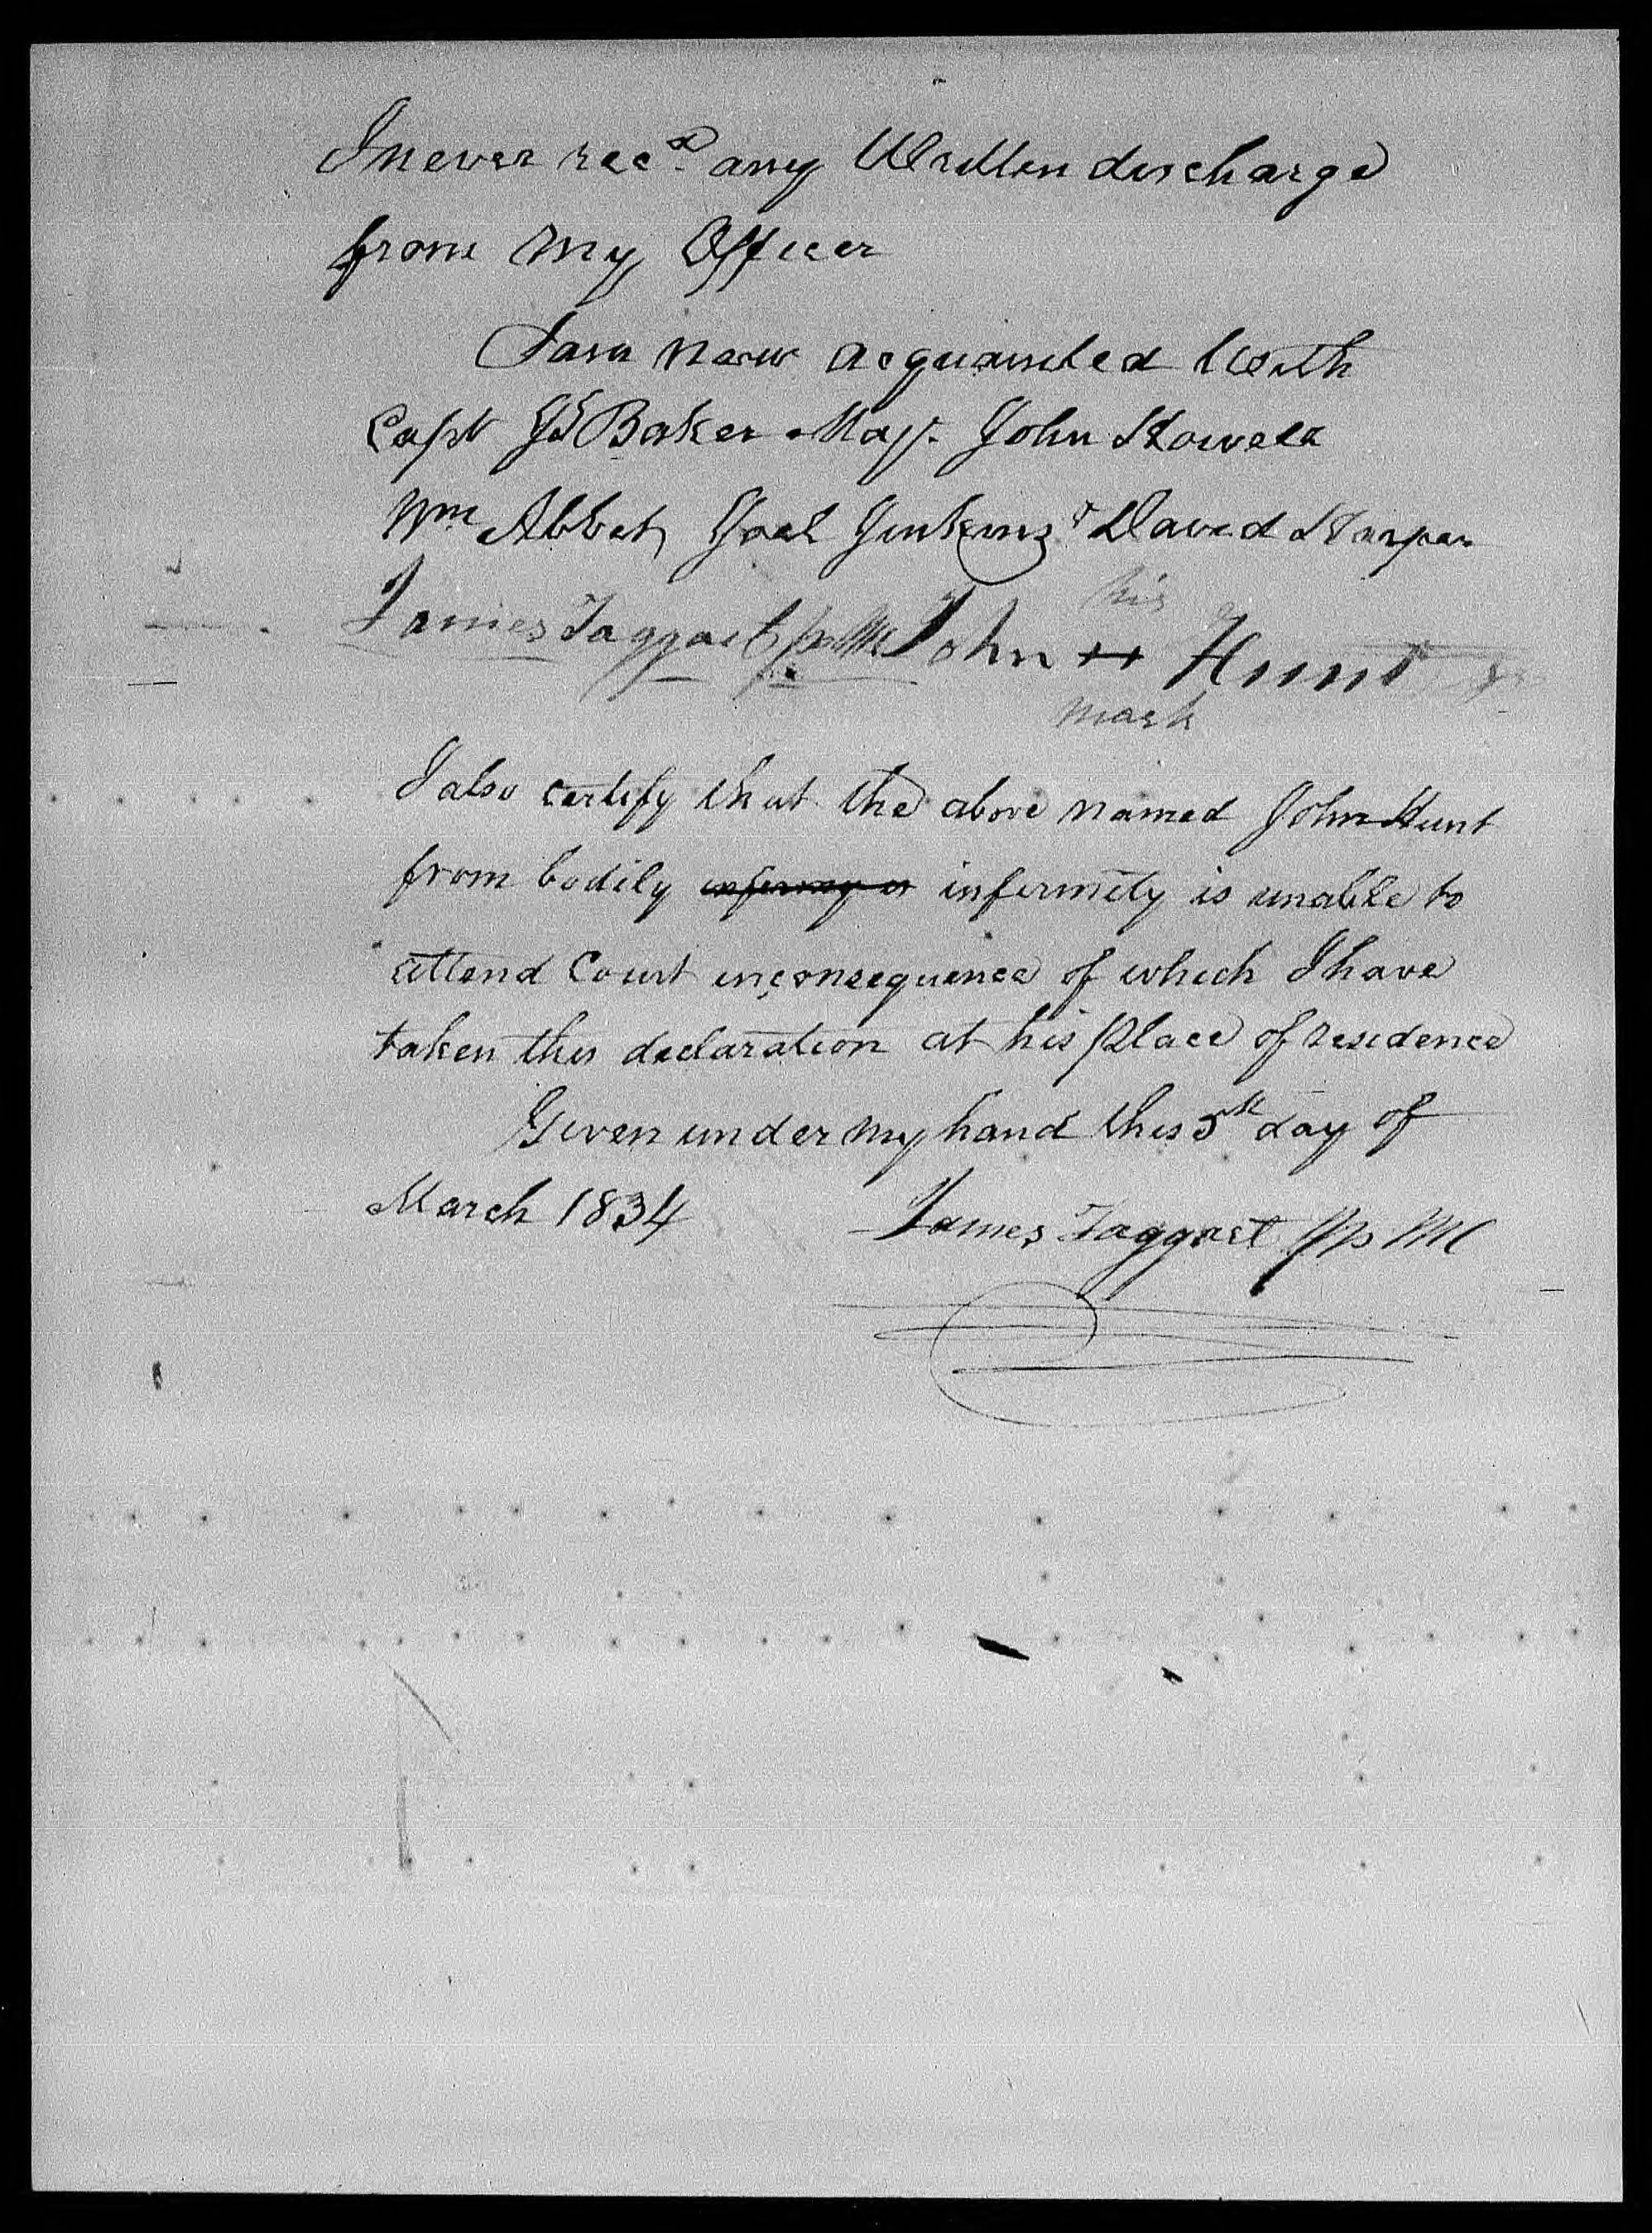 I never recd. any Written discharge
from my Officer
I am now acquainted With
Capt Js Baker Majr. John Howell
Wm Abbet, Joel Jenkins & David Harper
his
James Taggart Jp MC John ++ Hunt
mark
I also certify that the above named John Hunt
from bodily infirmity is unable to
attend Court inconsequence of which I have
taken this declaration at his place of residence
Given under my hand this 5th day of
March 1834
James Taggart Jp MC